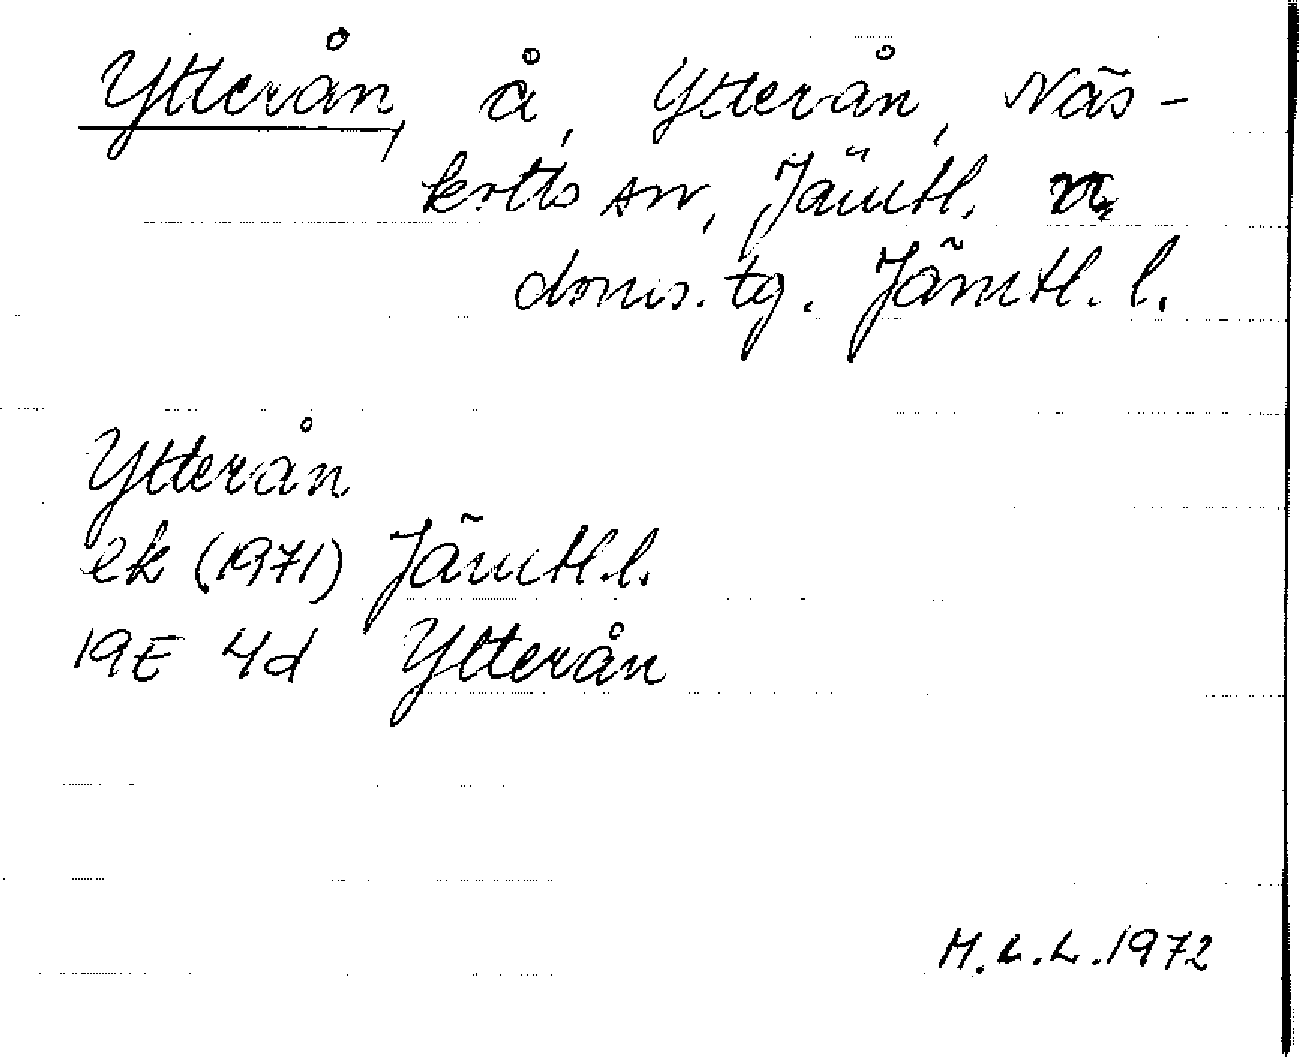 Ytterån, å, Ytterån, Näs-
kotts sn, Jämtl. n.
doms.tg. Jämtl.l.
Ytterån
ek (1971) Jämtl.l.
19E 4d Ytterån
M.L.L.1972